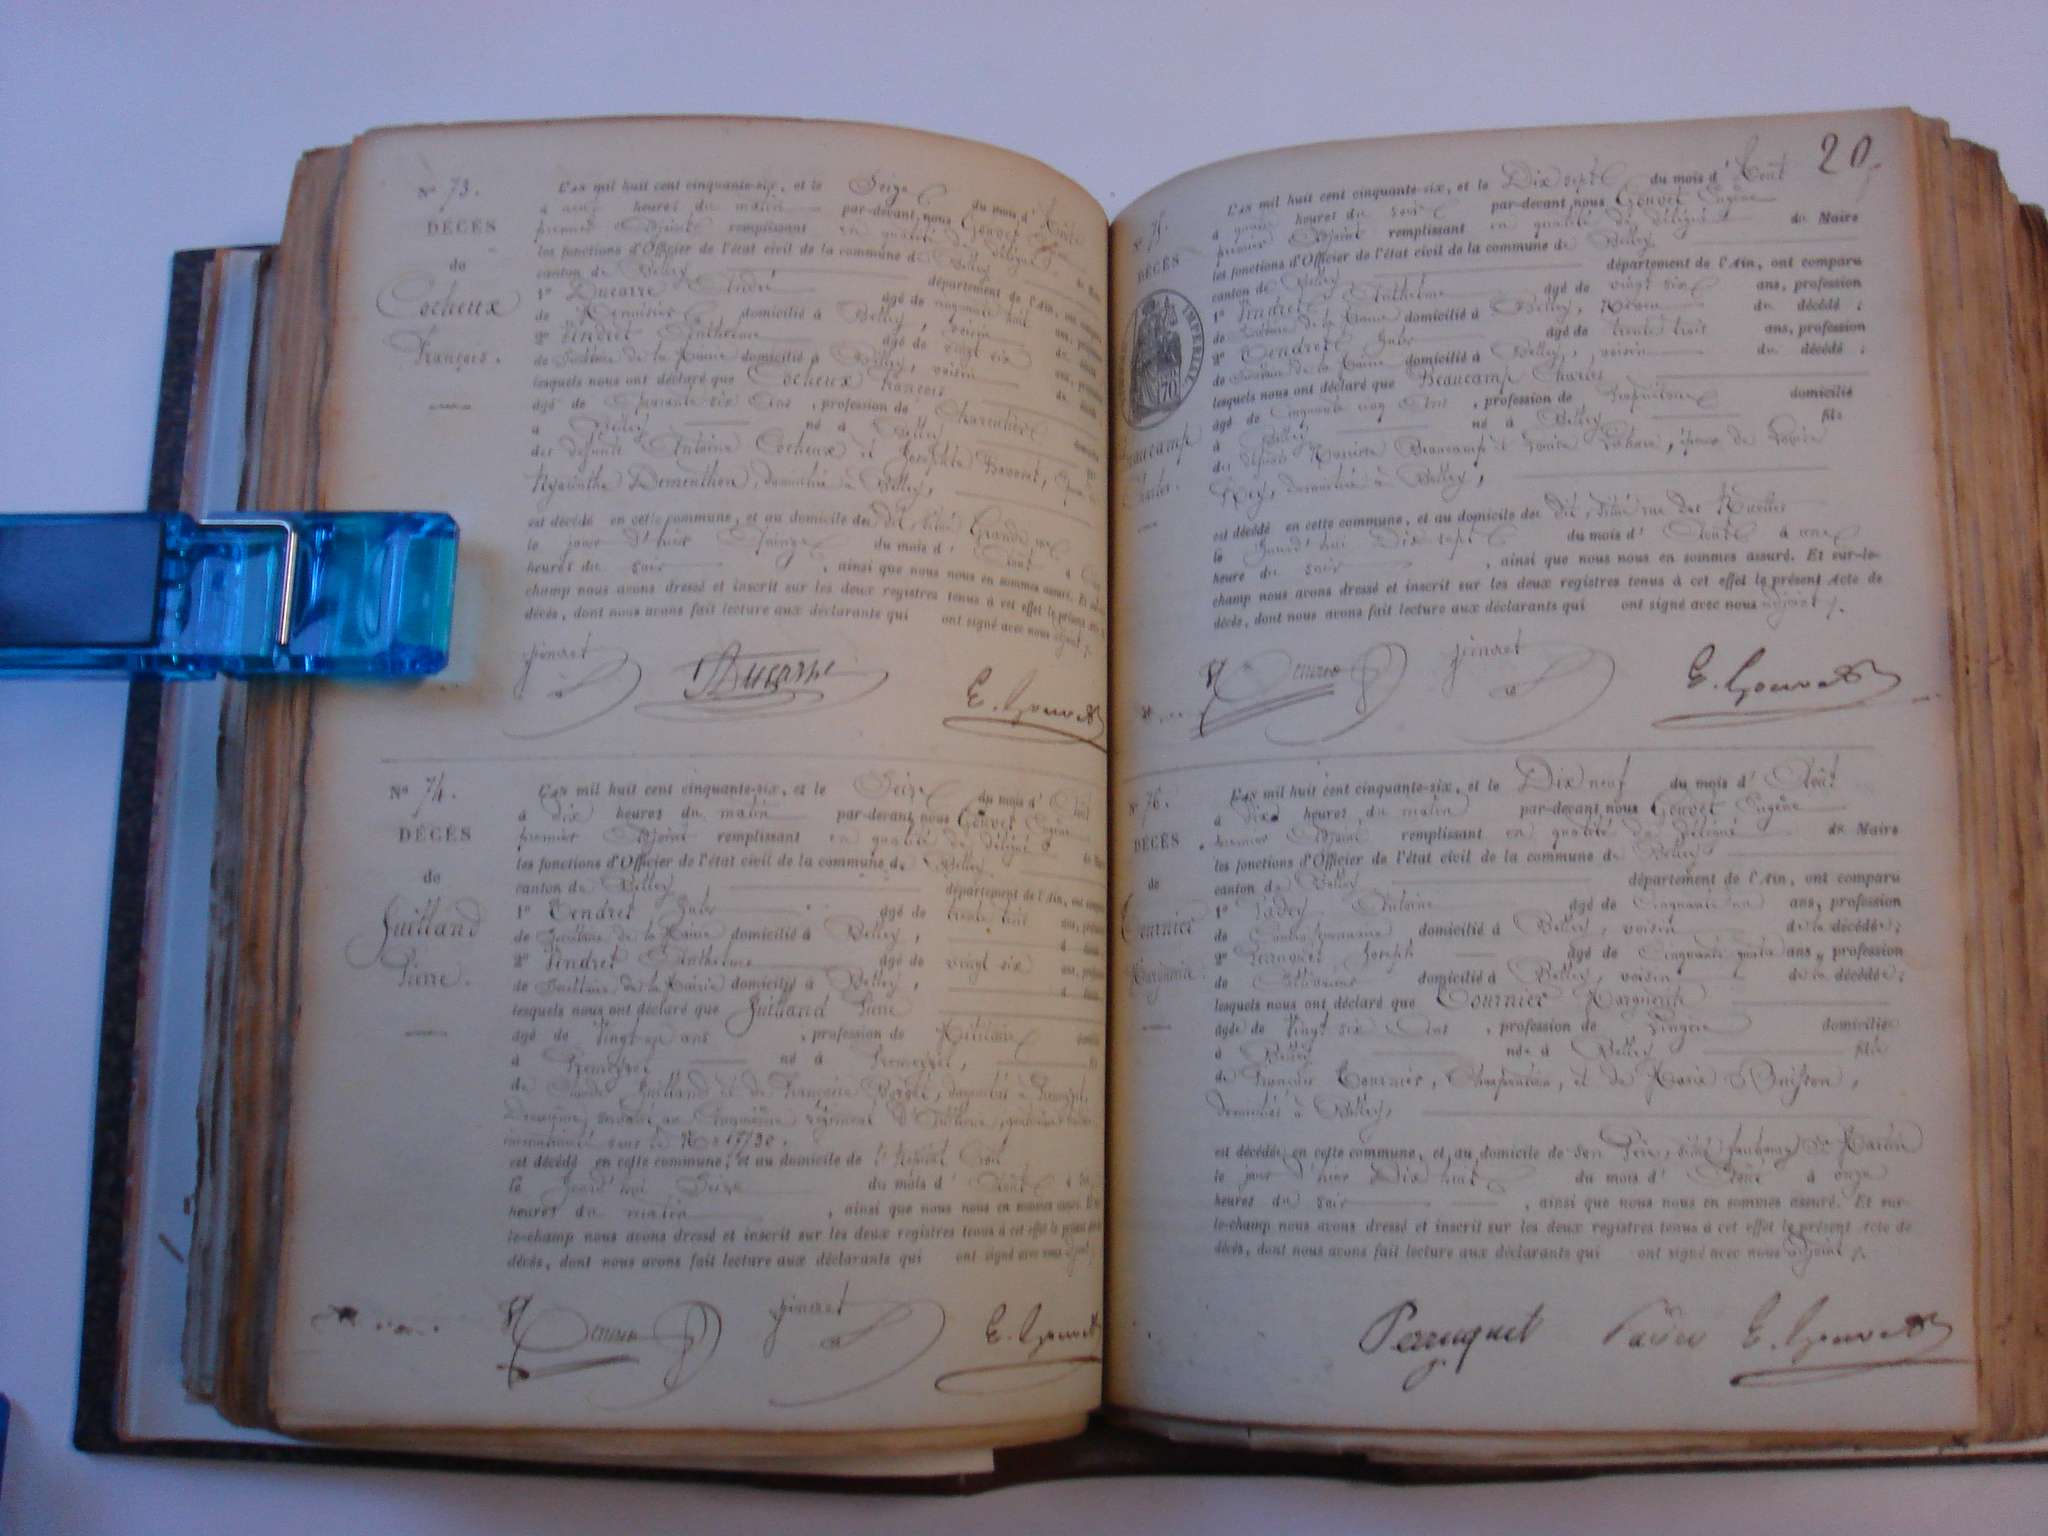 N° 73.
DÉCÈS
de
Cocheux
François.
L'an mil huit cent cinquante-six, et le Seize du mois d' Août
à neuf heures du matin par-devant nous Gouvet
premier Adjoint remplissant en qualité de délégué
les fonctions d'Officier de l'état civil de la commune de Belley
canton de Belley département de l'Ain, ont
1° Ducarre André âgé de cinquante huit ans,
de domicilié à Belley, voisin
2° Jindret Anthelme âgé de vingt six ans,
de Secrétaire de la Mairie domicilié à Belley, voisin
lesquels nous ont déclaré que Cocheux François
âgé de Quarante six Ans, profession de Charcutier
à Belley né à Belley
des défunts Antoine Cocheux et Josephte
Hyacinthe Dementhon, domiciliée à Belley,
est décédé en cette commune, et au domicile de Grande rue
le jour d'hier Quinze du mois d' Août à
heures du soir, ainsi que nous nous en sommes assuré. Et
champ nous avons dressé et inscrit sur les deux registres tenus à cet effet le présent
décès, dont nous avons fait lecture aux déclarants qui ont signé avec nous adjoint
Jindret Ducarre E. Gouvet
N° 74.
DÉCÈS
de
Juilland
Pierre.
L'an mil huit cent cinquante-six, et le Seize du mois d' Août
à Dix heures du matin par-devant nous Gouvet Eugène
premier Adjoint remplissant en qualité de délégué
les fonctions d'Officier de l'état civil de la commune de Belley
canton de Belley département de l'Ain, ont comparu
1° Tendret Jules âgé de trente trois ans,
de Secrétaire de la Mairie domicilié à Belley,
2° Jindret Anthelme âgé de vingt six ans,
de Secrétaire de la Mairie domicilié à Belley,
lesquels nous ont déclaré que Juilland Pierre
âgé de Vingt un ans, profession de Militaire
à Premeyzel né à Premeyzel,
de Claude Juilland et de Françoise domiciliés à Premeyzel,
immatriculé sous le N° 1730.
est décédé en cette commune, et au domicile de l'hôpital Civil
le Jourd'hui Seize du mois d' Août à
heures du matin, ainsi que nous nous en sommes assuré.
le-champ nous avons dressé et inscrit sur les deux registres tenus à cet effet le présent
décès, dont nous avons fait lecture aux déclarants qui ont signé avec nous adjoint
Jindret E. Gouvet
20
N° 75.
DÉCÈS
IMPERIAL
70
Beaucamp
Charles.
L'an mil huit cent cinquante-six, et le Dix sept du mois d' Août
à quatre heures du soir par-devant nous Gouvet Eugène
premier Adjoint remplissant en qualité de délégué de Maire
les fonctions d'Officier de l'état civil de la commune de Belley
canton de Belley département de l'Ain, ont comparu
1° Jindret Anthelme âgé de vingt six ans, profession
de Secrétaire de la Mairie domicilié à Belley, voisin du décédé;
2° Tendret Jules âgé de trente trois ans, profession
de Secrétaire de la Mairie domicilié à Belley, voisin du décédé;
lesquels nous ont déclaré que Beaucamp Charles
âgé de Cinquante Ans, profession de Propriétaire domicilié
à Belley, né à Belley fils
des défunts Beaucamp et Louise époux de Louise
Rey, domiciliée à Belley,
est décédé en cette commune, et au domicile de
le Jourd'hui Dix sept du mois d' Août à une
heure du soir, ainsi que nous nous en sommes assuré. Et sur-le-
champ nous avons dressé et inscrit sur les deux registres tenus à cet effet le présent Acte de
décès, dont nous avons fait lecture aux déclarants qui ont signé avec nous adjoint
Jindret E. Gouvet
N° 76.
DÉCÈS
de
Tournier
Marguerite.
L'an mil huit cent cinquante-six, et le Dix neuf du mois d' Août
à Dix heures du matin par-devant nous Gouvet Eugène
premier Adjoint remplissant en qualité de délégué de Maire
les fonctions d'Officier de l'état civil de la commune de Belley
canton de Belley département de l'Ain, ont comparu
1° Antoine âgé de Cinquante un ans, profession
de domicilié à Belley, voisin de la décédée;
2° Joseph âgé de Cinquante quatre ans, profession
de domicilié à Belley, voisin de la décédée;
lesquels nous ont déclaré que Tournier Marguerite
âgée de Vingt six Ans, profession de Lingère domiciliée
à Belley née à Belley fille
de François Tournier, Charpentier, et de Marie
domiciliés à Belley,
est décédée en cette commune, et au domicile de son Père, situé faubourg St Martin
le jour d'hier Dix huit du mois d' Août à onze
heures du soir, ainsi que nous nous en sommes assuré. Et sur-
le-champ nous avons dressé et inscrit sur les deux registres tenus à cet effet le présent Acte de
décès, dont nous avons fait lecture aux déclarants qui ont signé avec nous adjoint
Peruquet E. Gouvet